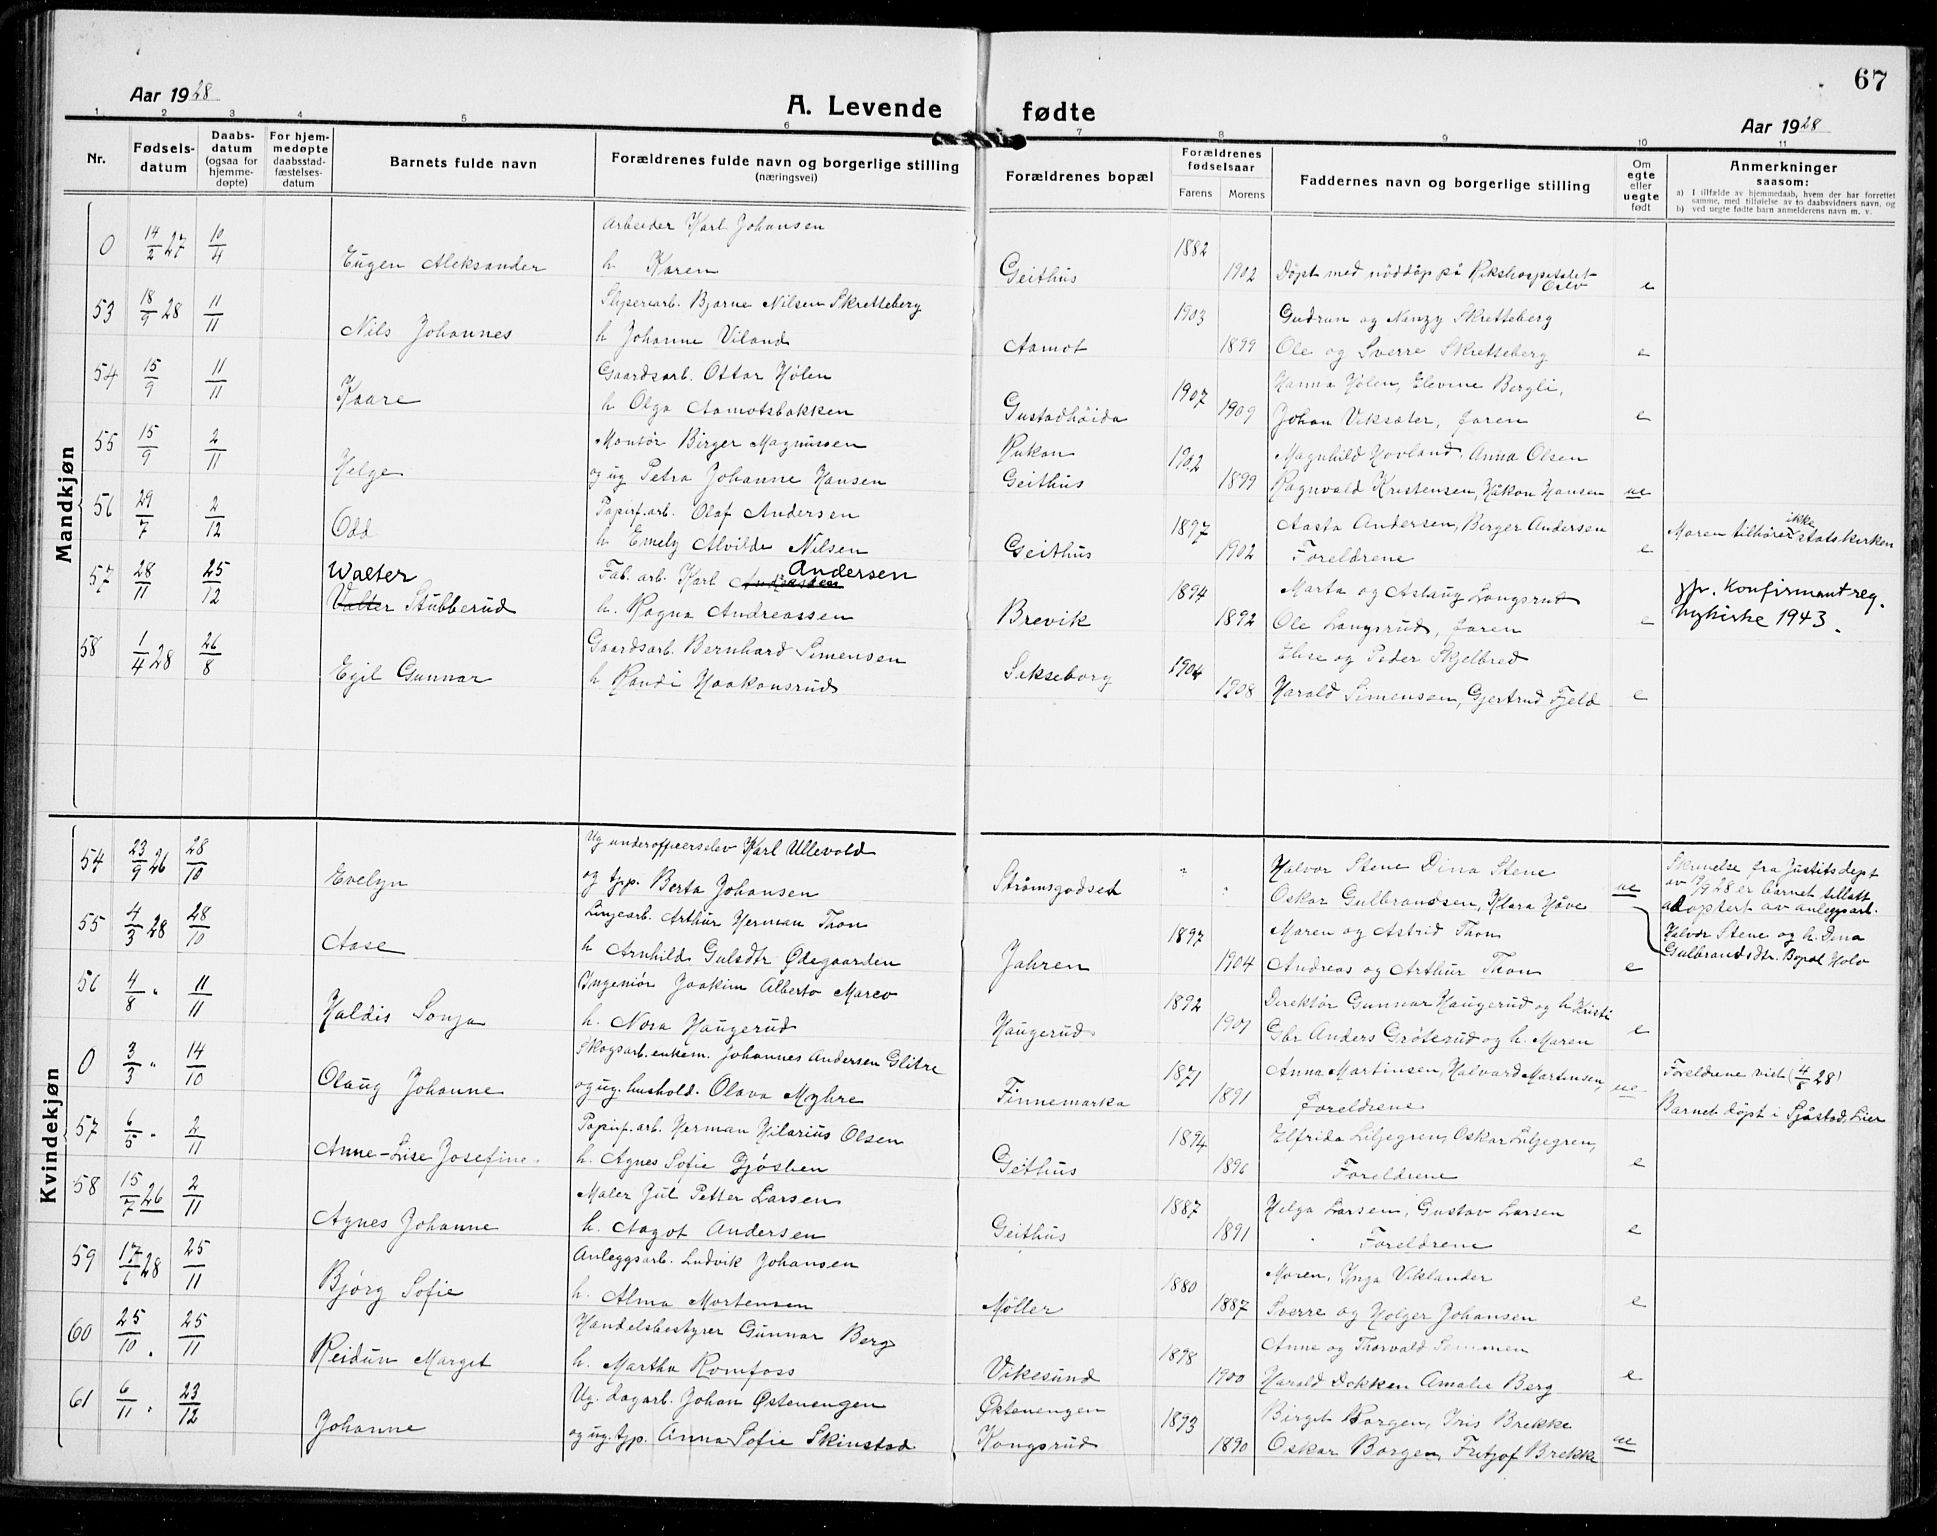 67
Aar 1928
A. Levende fødte
Aar 1928
1 2 3 4 5 6 7 8 9 10 11
Nr.
Fødsels-
datum
Daabs-
datum
(ogsaa for
hjemme-
døpte)
For hjem-
medøpte
daabsstad-
fæstelses-
datum
Barnets fulde navn
Forældrenes fulde navn og borgerlige stilling
(næringsvei)
Forældrenes bopæl
Forældrenes
fødselsaar
Farens Morens
Faddernes navn og borgerlige stilling
Om
egte
eller
uegte
født
Anmerkninger
saasom:
a) I tilfælde av hjemmedaab, hvem der har forrettet
samme, med tilføielse av to daabsvidners navn, og
b) ved uegte fødte barn anmelderens navn m. v.
Mandkjøn
Arbeider Karl Johansen 1882
0 14/2 27 10/4 Eugen Aleksander h Karen Geithus 1902 Døpt med nøddåp på Rikshospitalet Oslo e
Slipseriarb. Bjarne Nilsen Skretteberg 1903 Gudrun og Nanzy Skretteberg
53 18/9 28 11/11 Nils Johannes h Johanne Viland Aamot 1899 Ole og Sverre Skretteberg e
Gaardsarb. Ottar Hølen 1907 Hanna Hølen, Elevine Bergli,
54 15/9 11/11 Kaare h Olga Aamotsbakken Gustadhöida 1909 Johan Viksæter, faren e
Montør Birger Magnussen Rukan 1902 Magnhild Hovland, Anna Olsen
55 15/9 2/11 Helge og ug Petra Johanne Hansen Geithus 1899 Ragnvald Kristensen, Håkon Hansen ue
Papirf.arb. Olaf Andersen 1897 Aasta Andersen, Berger Andersen
56 29/7 2/12 Odd h Emely Alvilde Nilsen Geithus 1902 Foreldrene e Moren tilhører ikke statskirken
Walter Fab. arb. Karl Andersen 1894 Marta og Aslaug Langsrud
57 28/11 25/12 Valter Stubberud h. Ragna Andreassen Brevik 1892 Ole Langsrud, faren e jfr. Konfirmantreg.
Nykirke 1943.
Gaardsarb. Bernhard Simensen 1904 Elise og Peder Skjelbred
58 1/4 28 26/8 Egil Gunnar h Randi Haakonsrud Sekseborg 1908 Harald Simensen, Gjertrud Fjeld e
Kvindekjøn
Ug underofficerselev Karl Ullevold " Halvor Stene Dina Stene
54 23/9 26 28/10 Evelyn og tjp. Berta Johansen Strømsgodset " Oskar Gulbrandsen, Klara Høve ue
Skrivelse fra Justitsdept
av 17/9 28 er barnet tillatt
adoptert av anleggsarb.
Halvor Stene og h. Dina
Gulbrandsdtr. Bopæl Holv
Linjearb. Arthur Herman Thon 1897 Maren og Astrid Thon
55 4/3 28 28/10 Aase h Arnhild Gulsdtr Ødegaarden Jahren 1904 Andreas og Arthur Thon e
Ingeniør Joakim Alberto Marco 1892 Direktør Gunnar Haugerud og h Kristi
56 4/8 " 11/11 Haldis Sonja h. Nora Haugerud Haugerud 1901 Gbr Anders Grøterud og h. Maren e
Skogsarb. enkem. Johannes Andersen Glitre 1871 Anna Martinsen, Halvard Martinsen,
0 3/3 " 14/10 Olaug Johanne og ug. hushold. Olava Myhre Finnemarka 1891 foreldrene ue
Foreldrene viet (4/8 28)
Barnet døpt i Sjåstad, Lier
Papirf. arb. Herman Hilarius Olsen 1894 Elfrida Liljegren, Oskar Liljegren,
57 6/5 " 2/11 Anne-Lise Josefine h. Agnes Sofie Gjösben Geithus 1896 Foreldrene e
Maler Jul Petter Larsen 1887 Helga Larsen, Gustav Larsen
58 15/7 26 2/11 Agnes Johanne h. Aagot Andersen Geithus 1891 Foreldrene e
Anleggsarb. Ludvik Johansen 1880 Moren, Inga Viklander
59 17/6 28 25/11 Bjørg Sofie h. Alma Mortensen Møller 1887 Sverre og Holger Johansen e
Handelsbestyrer Gunnar Berg 1898 Anne og Thorvald Simmen
60 25/10 " 25/11 Reidun Marget h. Martha Romfoss Vikesund 1900 Harald Dokken Amalie Berg e
Ug. dagarb. Johan Østenengen Østenengen 1893 Birgit Borgen, Iris Brekke
61 6/11 " 23/12 Johanne og ug. tjp. Anna Sofie Skinstad Kongsrud 1890 Oskar Borgen, Fritjof Brekke ue